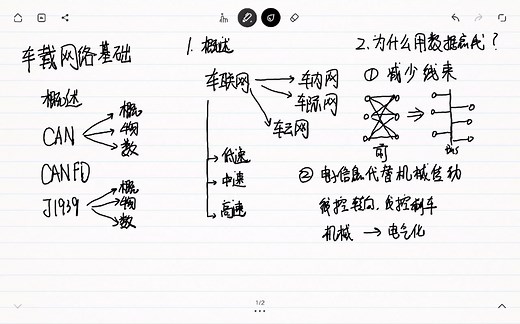 车载网络基础
概述
CAN
概
物
数
CANFD
J1939
概
物
数
1. 概述
车联网
车内网
车际网
车云网
低速
中速
高速
2. 为什么用数据总线?
① 减少线束
前
② 电信息代替机械传动
线控转向、线控刹车
机械 → 电气化
1/2